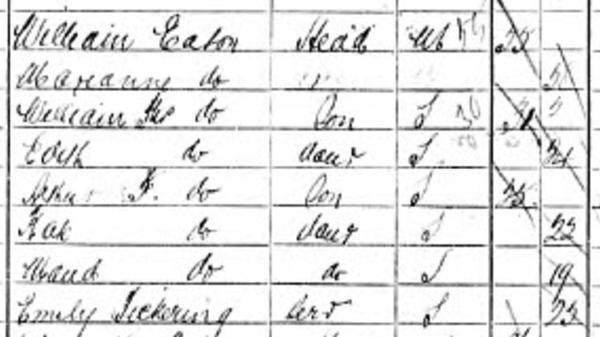 William Eason Head M 55
Marianne do
William do Son S 31
Edith do daur S 24
Arthur F. do Son S 25
Kate do daur S 22
Maud do do S 19
Emily Pickering Serv S 23